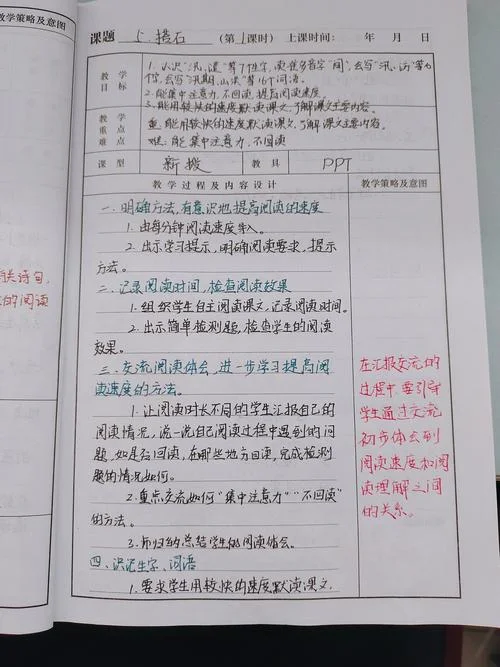 教学策略及意图
关诗句,
的阅读
课题 5.搭石 (第1课时) 上课时间: 年 月 日
教学目标
1.认识“汛、谴”等7个生字,读准多音字“间”,会写“汛、访”等
会写“汛期、山洪”等16个词语。
2.能集中注意力,不回读,提高阅读速度。
3.能用较快的速度默读课文,了解课文主要内容。
教学重点难点
重:能用较快的速度默读课文,了解课文主要内容。
难:能集中注意力,不回读
课型 新授 教具 PPT
教学过程及内容设计 教学策略及意图
一、明确方法,有意识地提高阅读的速度
1.由每分钟阅读速度导入。
2.出示学习提示,明确阅读要求,提示
方法。
二、记录阅读时间,检查阅读效果
1.组织学生自主阅读课文,记录阅读时间。
2.出示简单检测题,检查学生的阅读
效果。
三、交流阅读体会,进一步学习提高阅
读速度的方法。
1.让阅读时长不同的学生汇报自己的
阅读情况,说一说自己阅读过程中遇到的问
题,如是否回读,在哪些地方回读,完成检测
题的情况如何。
2.重点交流如何“集中注意力”“不回读”
的方法。
3.师归纳总结学生的阅读体会。
四、识记生字、词语
1.要求学生用较快的速度默读课文,
在汇报交流的
过程中,要引导
学生通过交流
初步体会到
阅读速度和阅
读理解之间
的关系。